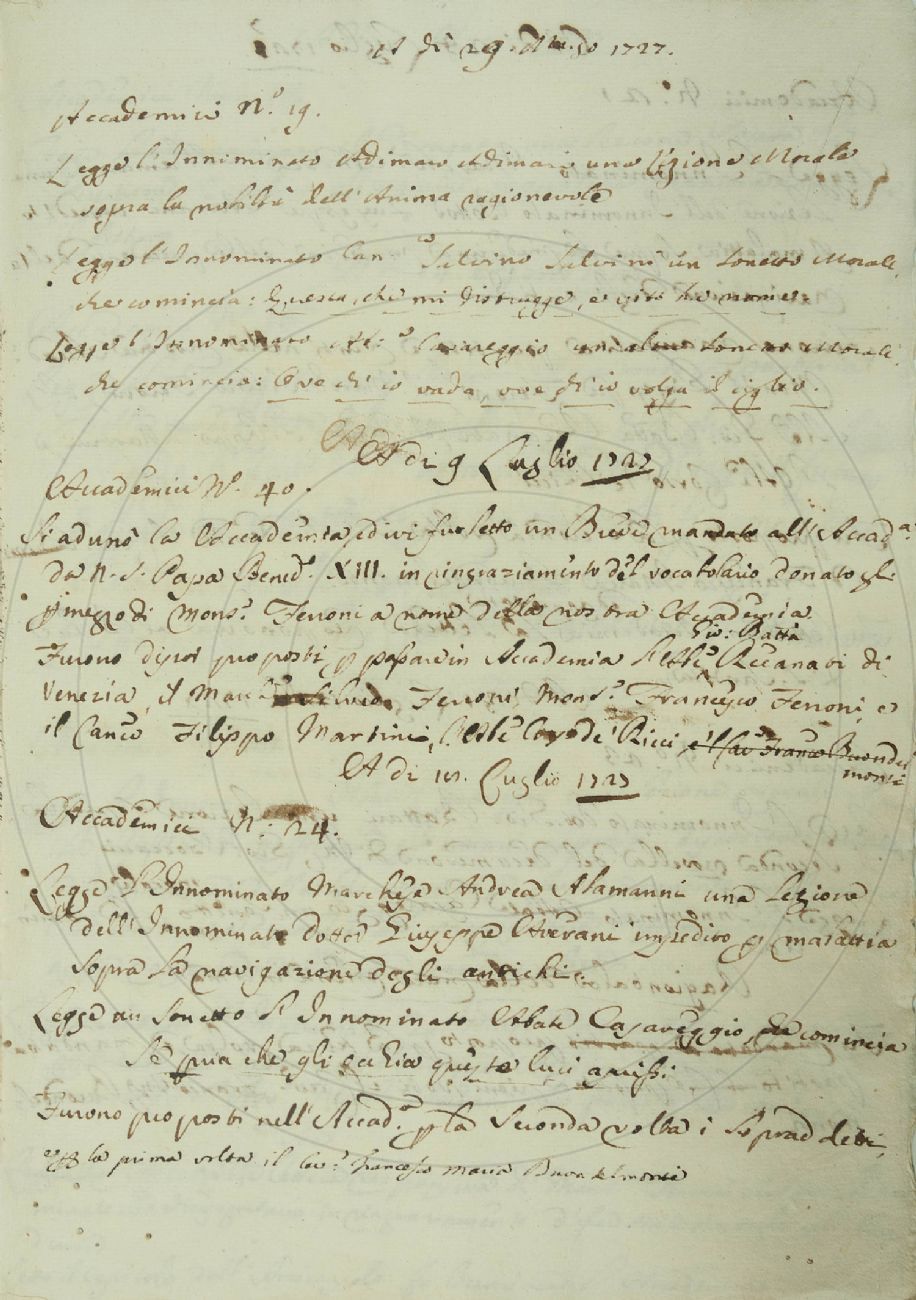 A di 29 Mago 1727.
Accademici N.º 19.
Legge l'Inniminato Adimaro Adimari una Lezione Morale
sopra la nobiltà dell'Anima ragionevole
Legge l'Innominato Canco Salvino Salvini un Sonetto Morale
che comincia: Questa, che mi distrugge, e
Legge l'Innominato Ab:e Casareggio un altro Sonetto Morale
che comincia: Ove di io vada, ove di io volga il ciglio.
A di 9 Luglio 1727
Accademici N.º 40.
Si adunò la Accademia, ed ivi fu letto un Breve mandato all'Accada:
da N. S. Papa Bened.º XIII. in ringraziamento del vocabolario donatogli
p mezzo di Monsr. Feroni a nome della nostra Accademia
Gio: Batta
Furono dipoi proposti p passare in Accademia l'Abe Recanati di
Venezia, il March Feroni, Monsr. Francesco Feroni, e
il Canco Filippo Martini, l'Abe Corso de' Ricci e'l Cavr Franco Buondel
monti
A di Luglio 1727
Accademici N: 24.
Legge l'Innominato Marchese Andrea Alamanni una Lezione
dell'Innominato dottor Giuseppe Averani impedito p malattia
sopra la navigazione degli antichi.
Legge un Sonetto l'Innominato Abate Casareggio, che comincia
Se pria che gli occhi a queste luci aprissi
Furono proposti nell'Accad.a p la seconda volta i sopraddetti,
e p la prima volta il Cav.r Francesco Maria Buondelmonti